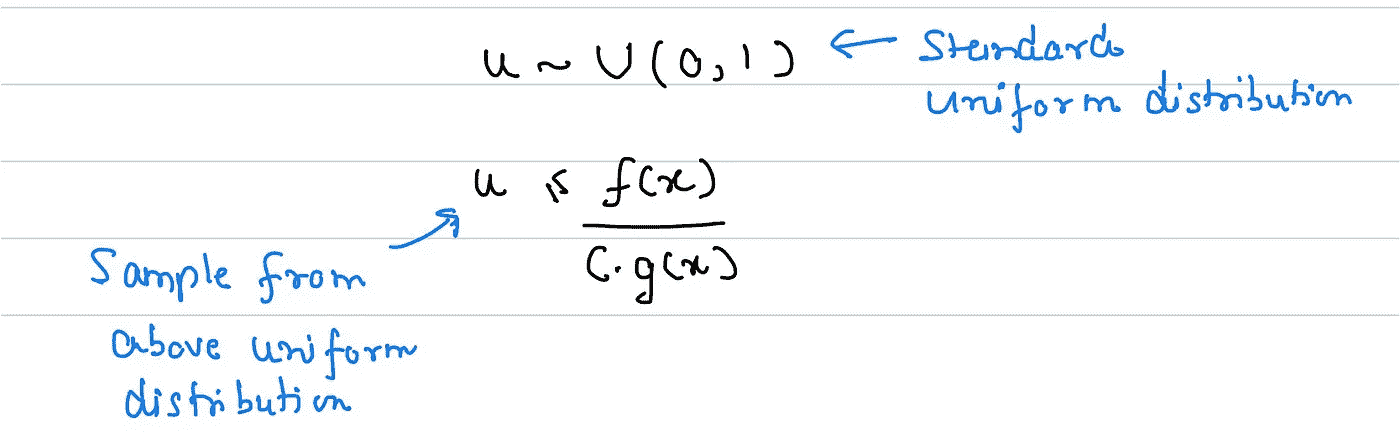 u ~ U(0,1) ← Standard
uniform distribution
u ≤ f(x)
C. g(x)
Sample from
above uniform
distribution